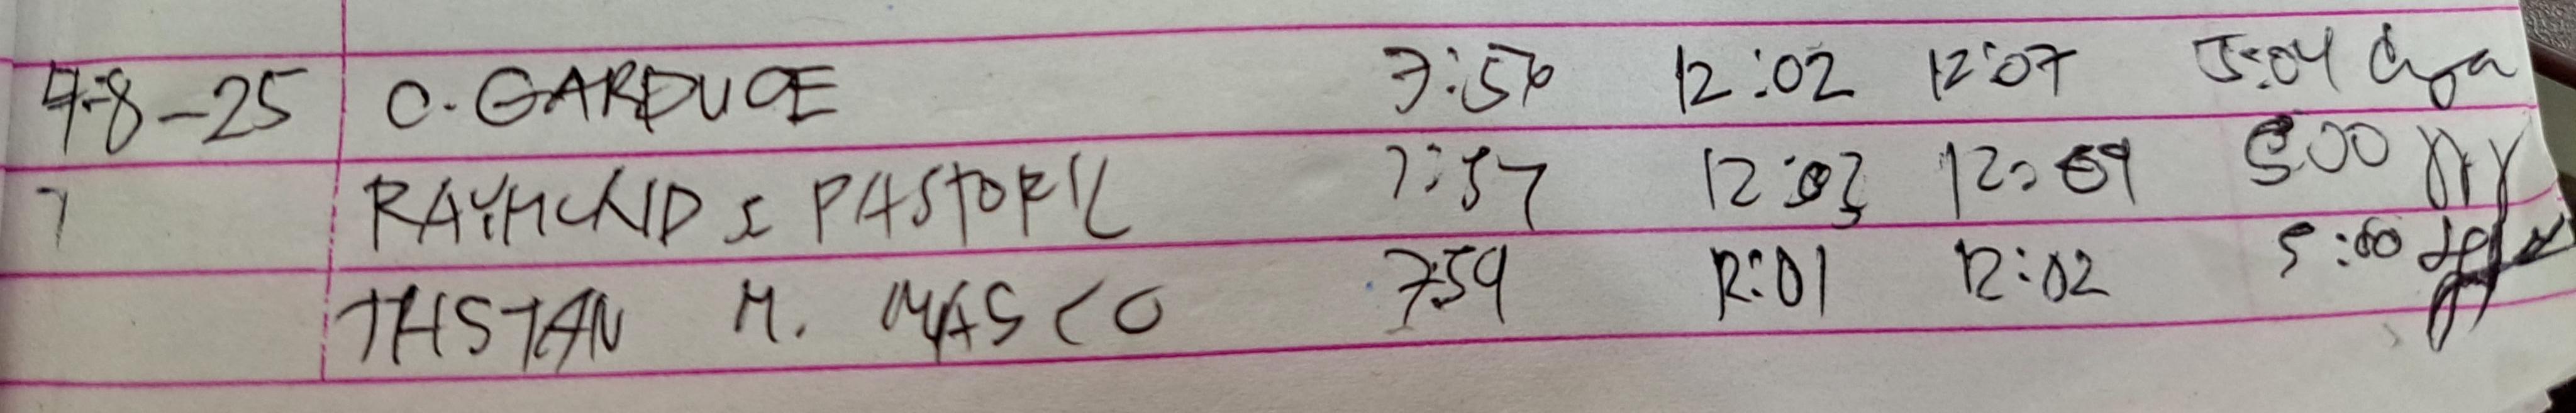 7-8-25 C. GARDUCE 7:56 12:02 12:07 5:04
RAYMUND S PASTORIL 7:57 12:03 12:09 5:00
TRISTAN M. MASCO 7:59 12:01 12:02 5:00